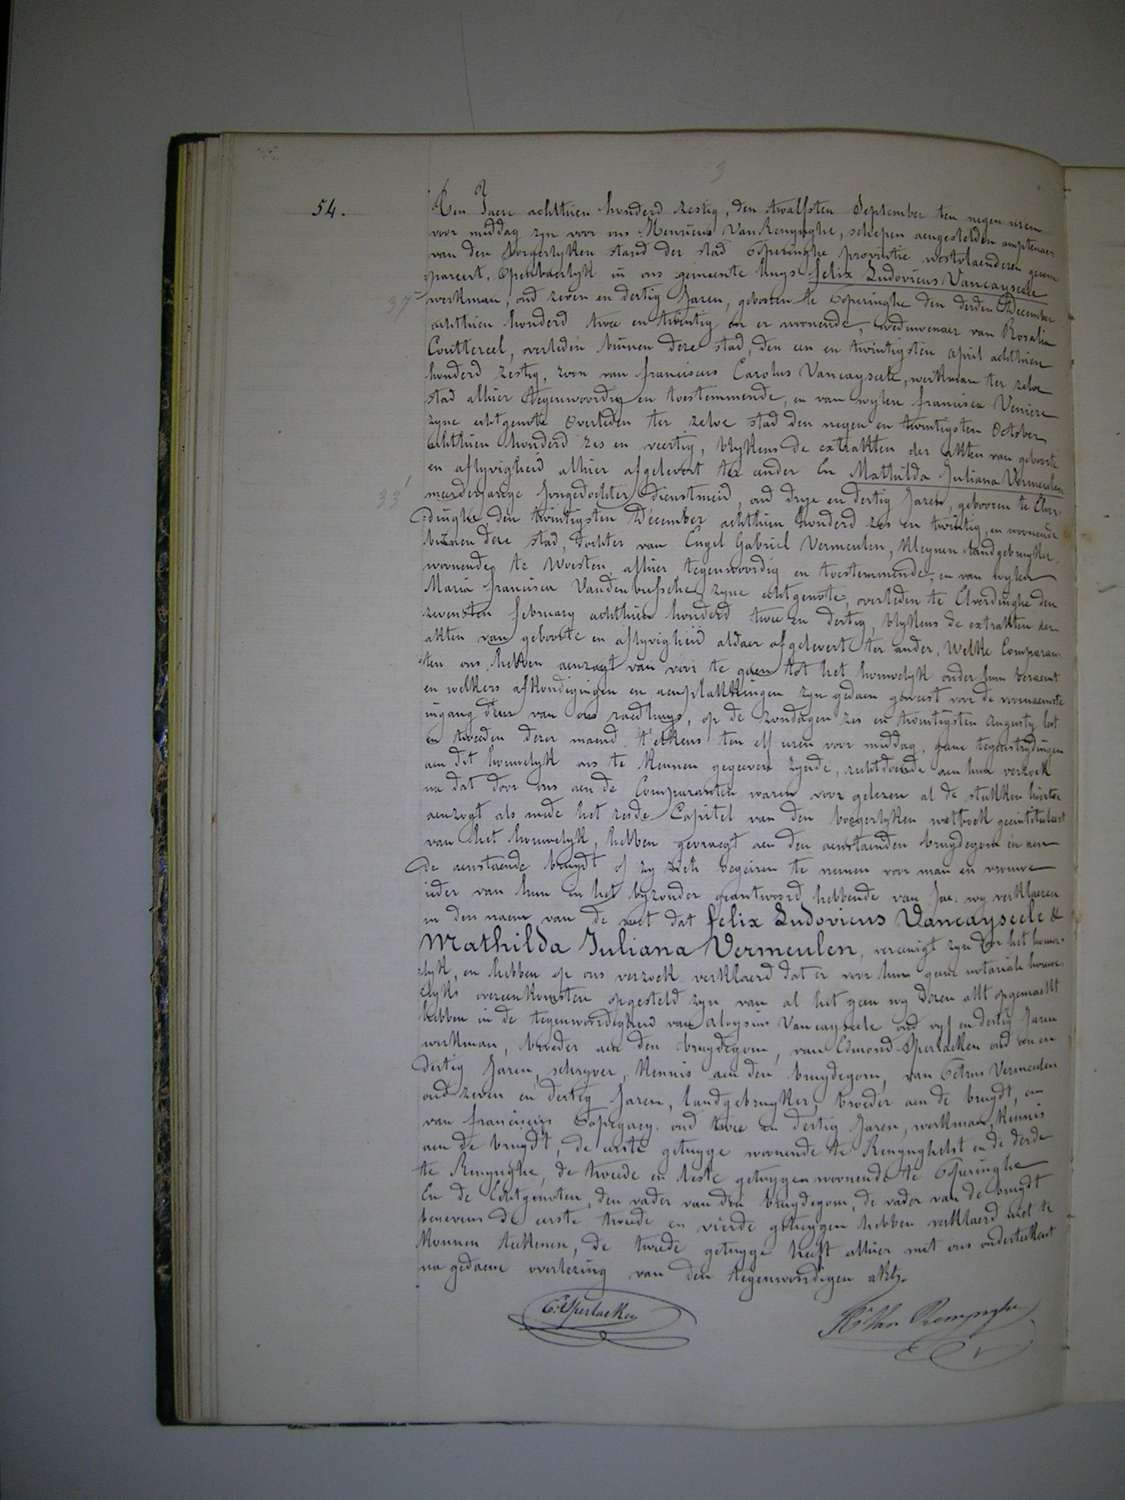 54.
Ten Jaere achthien honderd zestig, den twalfsten September ten negen uren
voor middag zyn voor ons Henricus Van Renynghe, schepen aengestelden amptenaer
van den borgerlyken stand der stad Poperinghe provintie westvlaenderen gecom
pareert, openbaerlyk in ons gemeente huys felix Ludovicus Vancayseele
37
werkman, oud zeven en dertig Jaren, geboren te Poperinghe den derden December
achthien honderd twee en twintig en er woonende, weduwenaer van Rosalia
Couttereel, overleden binnen deze stad, den een en twintigsten april achthien
honderd zestig, zoon van franciscus Carolus Vancayseele, werkman ter zelve
stad alhier tegenwoordig en toestemmende, en van wylen francisca
zyne echtgenote overleden ter zelve stad den negen en twintigsten October
achthien honderd zes en veertig, blykens de extrakten der akten van geboorte
en aflyvigheid alhier afgelevert ter ander En Mathilda Juliana Vermeulen
33
meerderjarige Jongedochter dienstmeid, oud drye en dertig Jaren, gebooren te Elver-
dinghe, den twintigsten December achthien honderd zes en twintig, en woonende
binnen deze stad, dochter van Engel Gabriel Vermeulen, kleynen landgebruyker
woonende te Woesten alhier tegenwoordig en toestemmende, en van wylen
Maria francisca Vandenbussche zyne echtgenote, overleden te Elverdinghe den
zevensten february achthien honderd twee en dertig, blykens de extrakten der
akten van geboorte en aflyvigheid aldaer afgelevert ter ander, Welke Comparan-
ten ons hebben aenzogt van voor te gaen tot het houwelyk onder hun beraemt
en welkers afkondigingen en aenplakkingen zyn gedaen geweest voor de voornaemste
ingang deur van ons raedhuys, op de zondagen zes en twintigsten augusty lest
en tweeden dezer maend telkens ten elf uren voor middag, geene tegenstrydingen
aen dit houwelyk ons te kennen gegeeven zynde, rechtdoende aen hun verzoek
na dat door ons aen de Comparanten waren voor gelezen al de stukken hiertoe
aenzogt als mede het zesde Capitel van den borgerlyken wetboek geintituleert
van het houwelyk, hebben gevraegt aen den aenstaenden bruydegom en aen
de aenstaende bruydt of zy zich begeiren te nemen voor man en vrouwe
ieder van hun en het byzonder geantwoord hebbende van Jae. wy verklaeren
in den naem van de wet dat felix Ludovicus Vancayseele &
Mathilda Juliana Vermeulen, vereenigt zyn door het houwe-
lyk, en hebben op ons verzoek verklaerd dat er voor hun geene notariale houwe-
lyks overeenkomsten opgesteld zyn van al het geen wy dezen akt opgemaekt
hebben in de tegenwoordigheid van Aloysius Vancayseele oud vyf en dertig Jaren
werkman, broeder aen den bruydegom, van Edmond Sperlaeken oud een en
dertig Jaren, schryver, kennis aen den bruydegom, van Petrus Vermeulen
oud zeven en dertig Jaren, landgebruyker, broeder aen de bruydt, en
van franciscus oud twee en dertig Jaren, werkman, kennis
aen de bruydt, de eerste getuyge woonende te Renynghelst en de derde
te Renynghe, de tweede en leste getuygen woonende te Poperinghe
En de Echtgenoten, den vader van den bruydegom, de vader van de bruydt
benevens de eerste derde en vierde getuygen hebben verklaerd niet te
konnen teekenen, de tweede getuyge heeft alhier met ons onderteekent
na gedaene overlezing van den tegenwoordigen akt.
E. Sperlaeken
Hri Van Renynghe